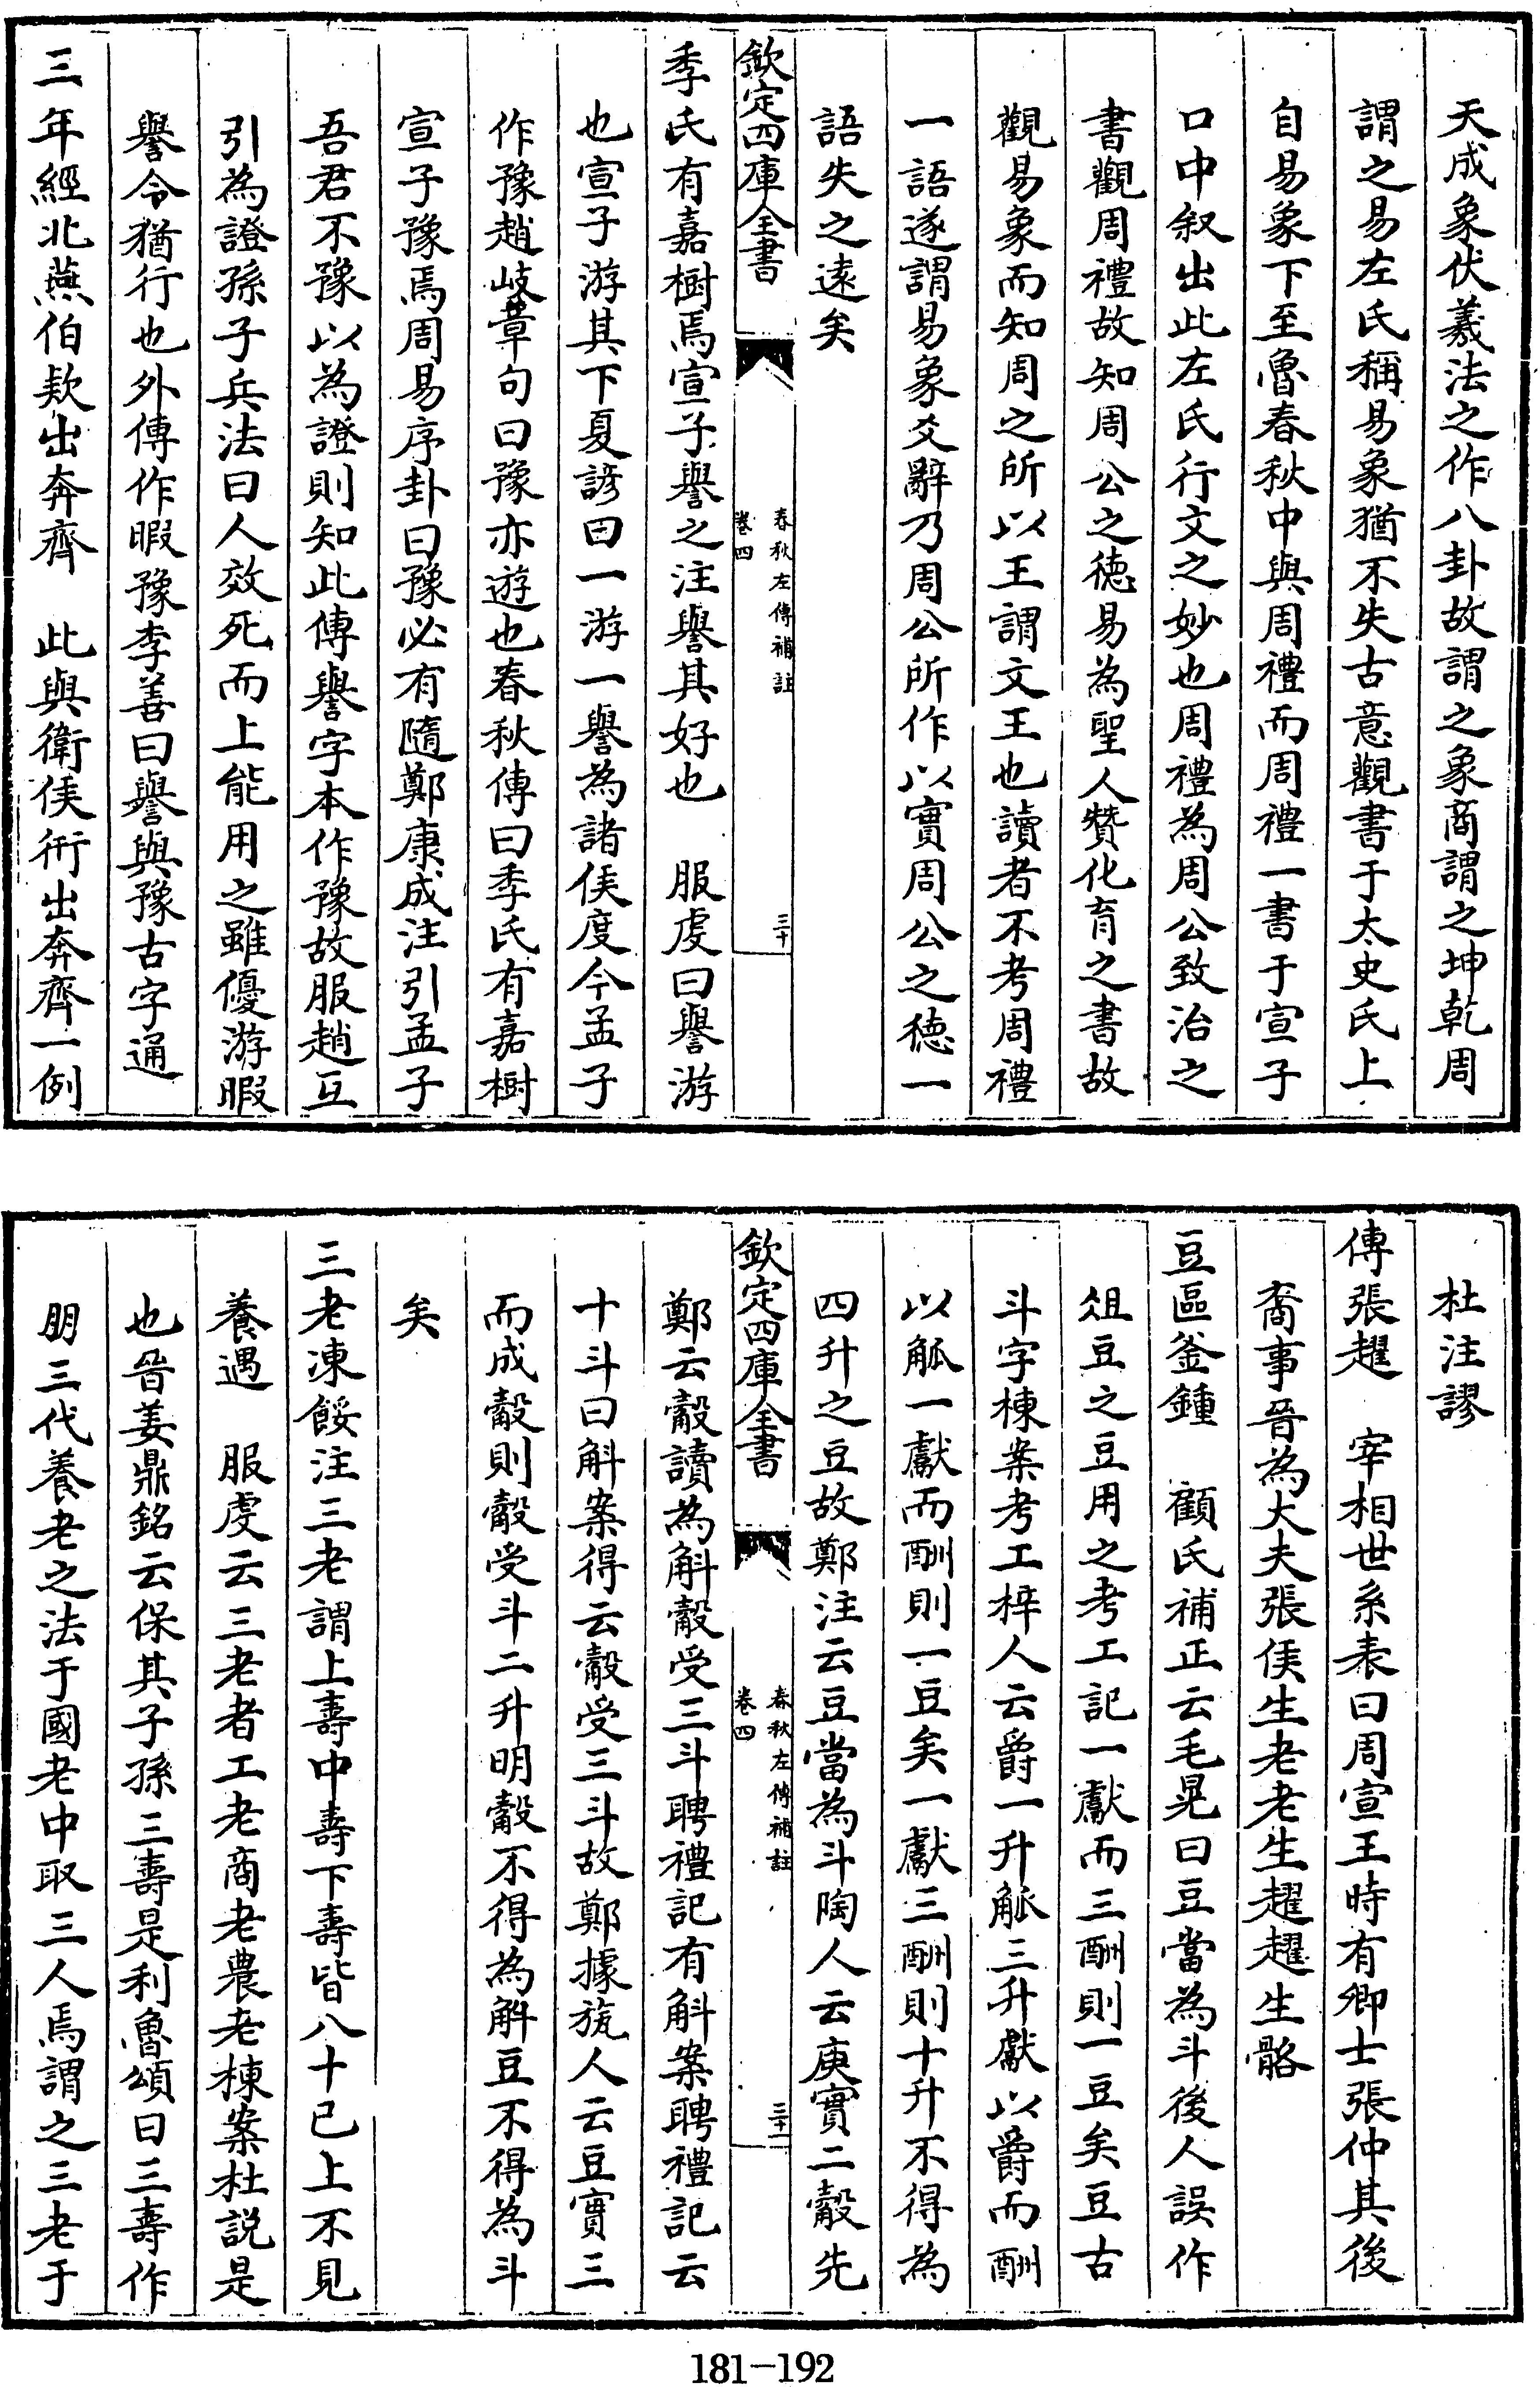 天成象伏羲法之作八卦故謂之象商謂之坤乾周
謂之易左氏稱易象猶不失古意觀書于太史氏上
自易象下至魯春秋中與周禮而周禮一書于宣子
口中叙出此左氏行文之妙也周禮為周公致治之
書觀周禮故知周公之徳易為聖人贊化育之書故
觀易象而知周之所以王謂文王也讀者不考周禮
一語遂謂易象爻辭乃周公所作以實周公之徳一
語失之逺矣
欽定四庫全書
春秋左傳補註
卷四
三十
季氏有嘉樹焉宣子譽之注譽其好也　服虔曰譽游
也宣子游其下夏諺曰一游一譽為諸侯度今孟子
作豫趙岐章句曰豫亦遊也春秋傳曰季氏有嘉樹
宣子豫焉周易序卦曰豫必有隨鄭康成注引孟子
吾君不豫以為證則知此傳譽字本作豫故服趙互
引為證孫子兵法曰人效死而上能用之雖優游暇
譽令猶行也外傳作暇豫李善曰譽與豫古字通
三年經北燕伯欵出奔齊　此與衛侯衎出奔齊一例
杜注謬
傳張趯　宰相世系表曰周宣王時有卿士張仲其後
裔事晉為大夫張侯生老老生趯趯生骼
豆區釜鍾　顧氏補正云毛晃曰豆當為斗後人誤作
俎豆之豆用之考工記一獻而三酬則一豆矣豆古
斗字棟案考工梓人云爵一升觚三升獻以爵而酬
以觚一獻而酬則一豆矣一獻三酬則十升不得為
四升之豆故鄭注云豆當為斗陶人云庾實二觳先
欽定四庫全書
春秋左傳補註
卷四
三十一
鄭云觳讀為斛觳受三斗聘禮記有斛案聘禮記云
十斗曰斛案得云觳受三斗故鄭據旊人云豆實三
而成觳則觳受斗二升明觳不得為斛豆不得為斗
矣
三老凍餒注三老謂上壽中壽下壽皆八十已上不見
養遇　服虔云三老者工老商老農老棟案杜説是
也晉姜鼎銘云保其子孫三壽是利魯頌曰三壽作
朋三代養老之法于國老中取三人焉謂之三老于
181-192